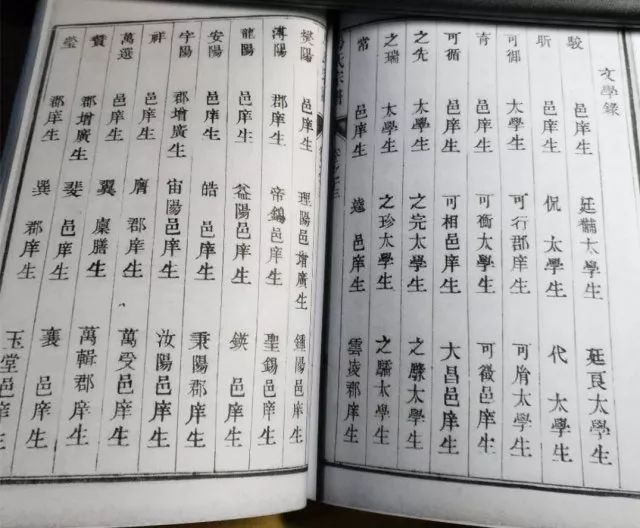 文學錄
駿 邑庠生 廷太學生 廷良太學生
昕 邑庠生 侃 太學生 代 太學生
可御 太學生 可行郡庠生 可脩太學生
青 邑庠生 可衡太學生 可徵邑庠生
可循 邑庠生 可相邑庠生 大昌邑庠生
之先 太學生 之完太學生 之騄太學生
之瑞 太學生 之珍太學生 之驕太學生
常 邑庠生 遠 邑庠生 雲凌郡庠生
氏宗譜
樊陽 邑庠生 理陽邑增廣生 鍾陽邑庠生
溥陽 郡庠生 帝錫邑庠生 聖錫邑庠生
龍陽 邑庠生 益陽邑庠生 鍈 邑庠生
安陽 邑庠生 皓 邑庠生 秉陽郡庠生
宇陽 郡增廣生 宙陽邑庠生 汝陽邑庠生
祥 邑庠生 膺 郡庠生 萬受邑庠生
萬選 邑庠生 翼 廩膳生 萬輯郡庠生
贊 郡增廣生 斐 邑庠生 襄 邑庠生
瑩 郡庠生 巽 郡庠生 玉堂邑庠生